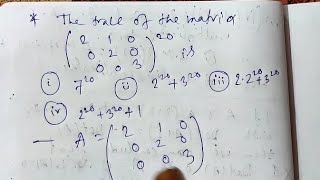 * The trace of the matrix
(2 1 0
0 2 0
0 0 3)²⁰ is
(i) 7²⁰ (ii) 2²⁰+3²⁰ (iii) 2·2²⁰+3²⁰
(iv) 2²⁰+3²⁰+1
— A = (2 1 0
0 2 0
0 0 3)